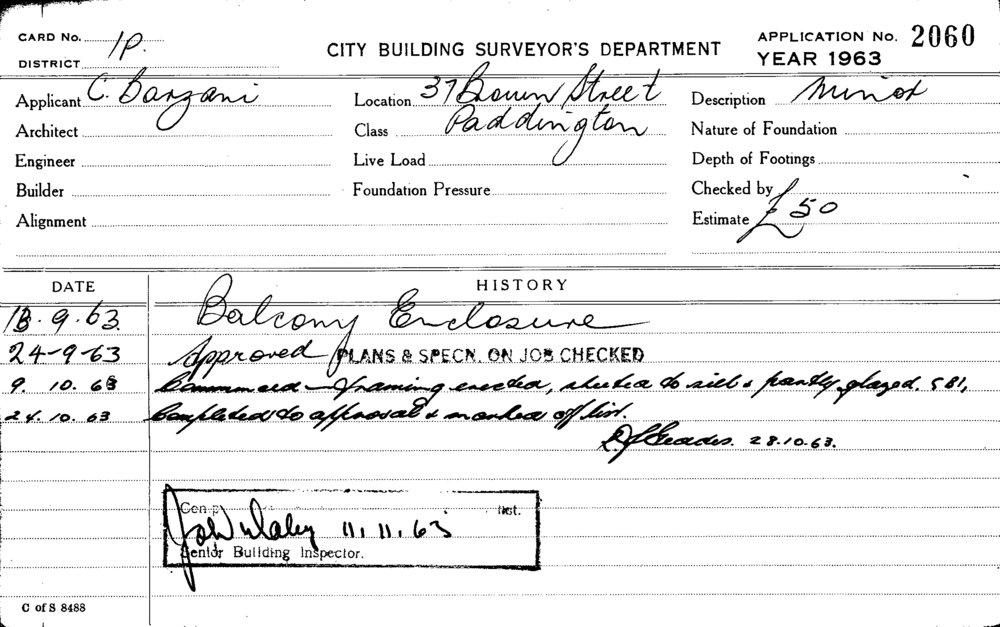 CARD No. 1P. CITY BUILDING SURVEYOR'S DEPARTMENT APPLICATION No. 2060
DISTRICT YEAR 1963
Applicant C. Barzani Location 37 Brown Street Description Minor
Architect Class Paddington Nature of Foundation
Engineer Live Load Depth of Footings
Builder Foundation Pressure Checked by
Alignment Estimate £50
DATE HISTORY
13.9.63. Balcony Enclosure
24-9-63 Approved PLANS & SPECN. ON JOB CHECKED
9. 10. 63 Commenced – framing erected, sheeted to sill & partly glazed. S81,
24.10.63 Completed to approval & marked off list.
28.10.63.
11.11.63
Senior Building Inspector.
C of S 8488